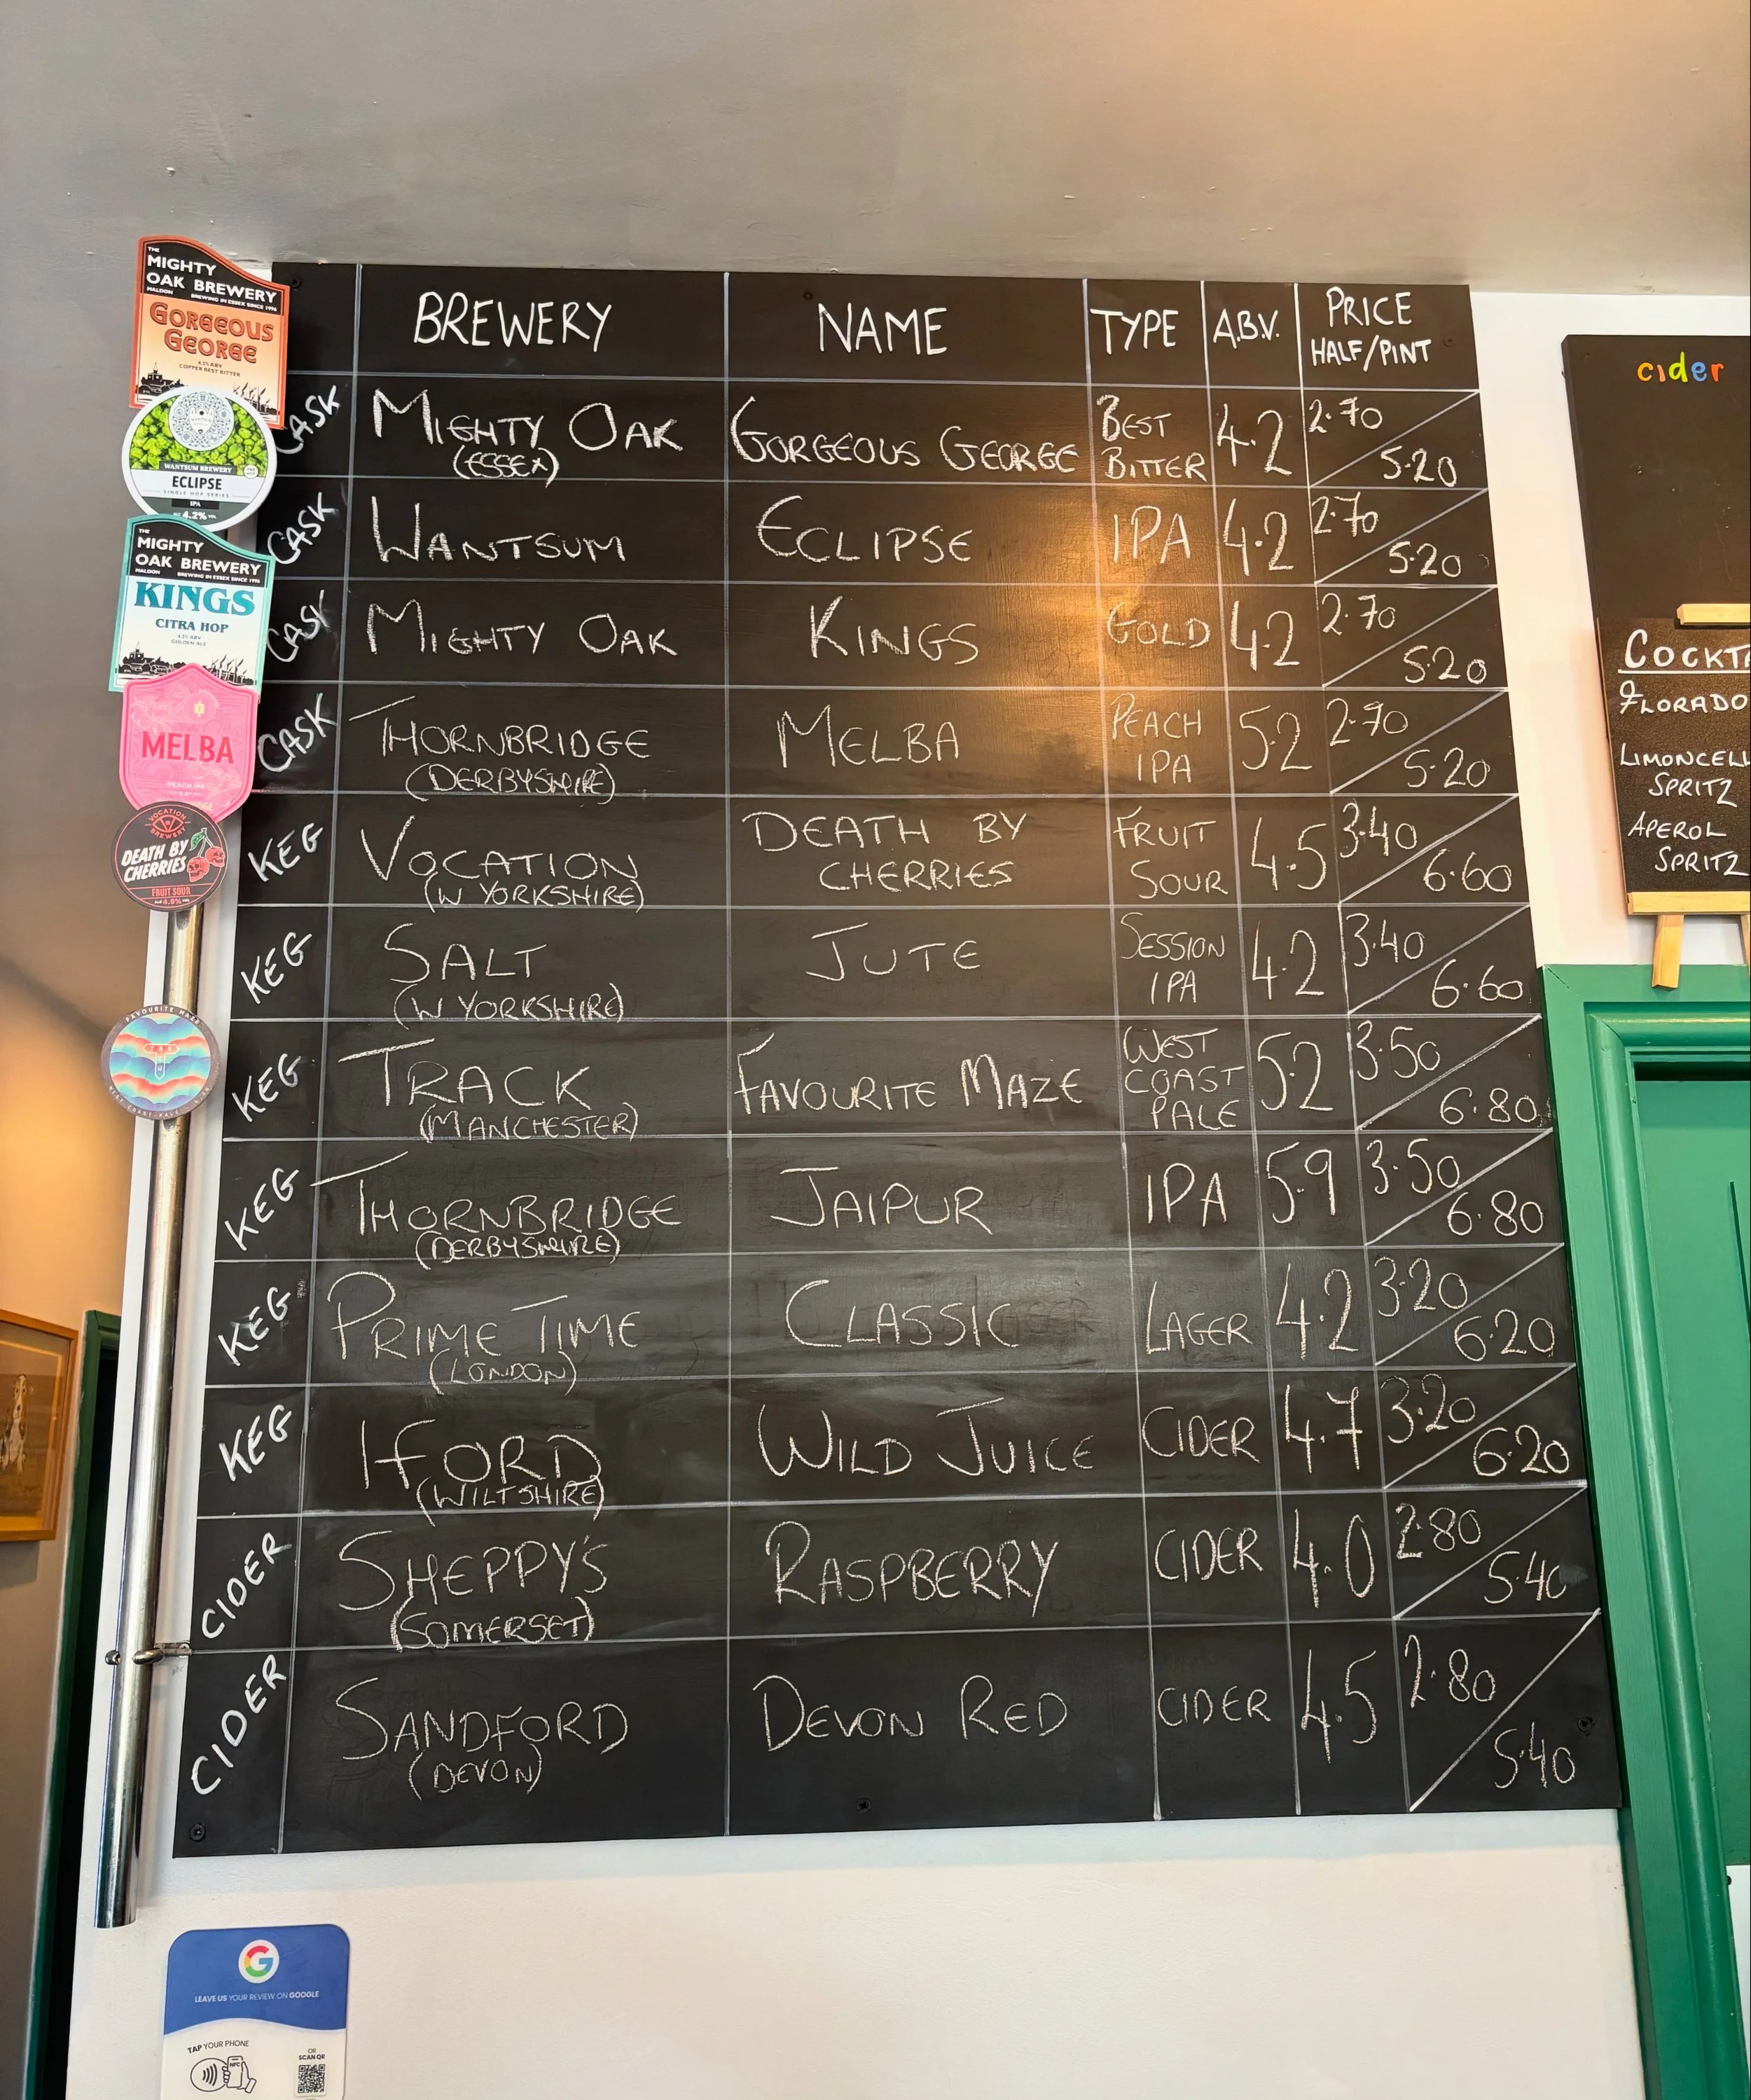 BREWERY NAME TYPE A.B.V. PRICE HALF/PINT
CASK MIGHTY OAK (ESSEX) GORGEOUS GEORGE BEST BITTER 4.2 2.70 5.20
CASK WANTSUM ECLIPSE IPA 4.2 2.70 5.20
CASK MIGHTY OAK KINGS GOLD 4.2 2.70 5.20
CASK THORNBRIDGE (DERBYSHIRE) MELBA PEACH IPA 5.2 2.70 5.20
KEG VOCATION (W YORKSHIRE) DEATH BY CHERRIES FRUIT SOUR 4.5 3.40 6.60
KEG SALT (W YORKSHIRE) JUTE SESSION IPA 4.2 3.40 6.60
KEG TRACK (MANCHESTER) FAVOURITE MAZE WEST COAST PALE 5.2 3.50 6.80
KEG THORNBRIDGE (DERBYSHIRE) JAIPUR IPA 5.9 3.50 6.80
KEG PRIME TIME (LONDON) CLASSIC LAGER 4.2 3.20 6.20
KEG IFORD (WILTSHIRE) WILD JUICE CIDER 4.7 3.20 6.20
CIDER SHEPPY'S (SOMERSET) RASPBERRY CIDER 4.0 2.80 5.40
CIDER SANDFORD (DEVON) DEVON RED CIDER 4.5 2.80 5.40
THE
MIGHTY
OAK BREWERY
MALDON BREWING IN ESSEX SINCE 1996
GORGEOUS
GEORGE
4.2% ABV
COPPER BEST BITTER
WANTSUM BREWERY
ECLIPSE
SINGLE HOP SERIES
IPA
4.2% VOL
THE
MIGHTY
OAK BREWERY
MALDON BREWING IN ESSEX SINCE 1996
KINGS
CITRA HOP
4.2% ABV
GOLDEN ALE
MELBA
PEACH IPA
VOCATION
BREWERY
DEATH BY
CHERRIES
FRUIT SOUR
FAVOURITE MAZE
WEST COAST PALE
cider
COCKTA
FLORADO
LIMONCELL
SPRITZ
APEROL
SPRITZ
G
LEAVE US YOUR REVIEW ON GOOGLE
TAP YOUR PHONE
NFC
OR
SCAN QR